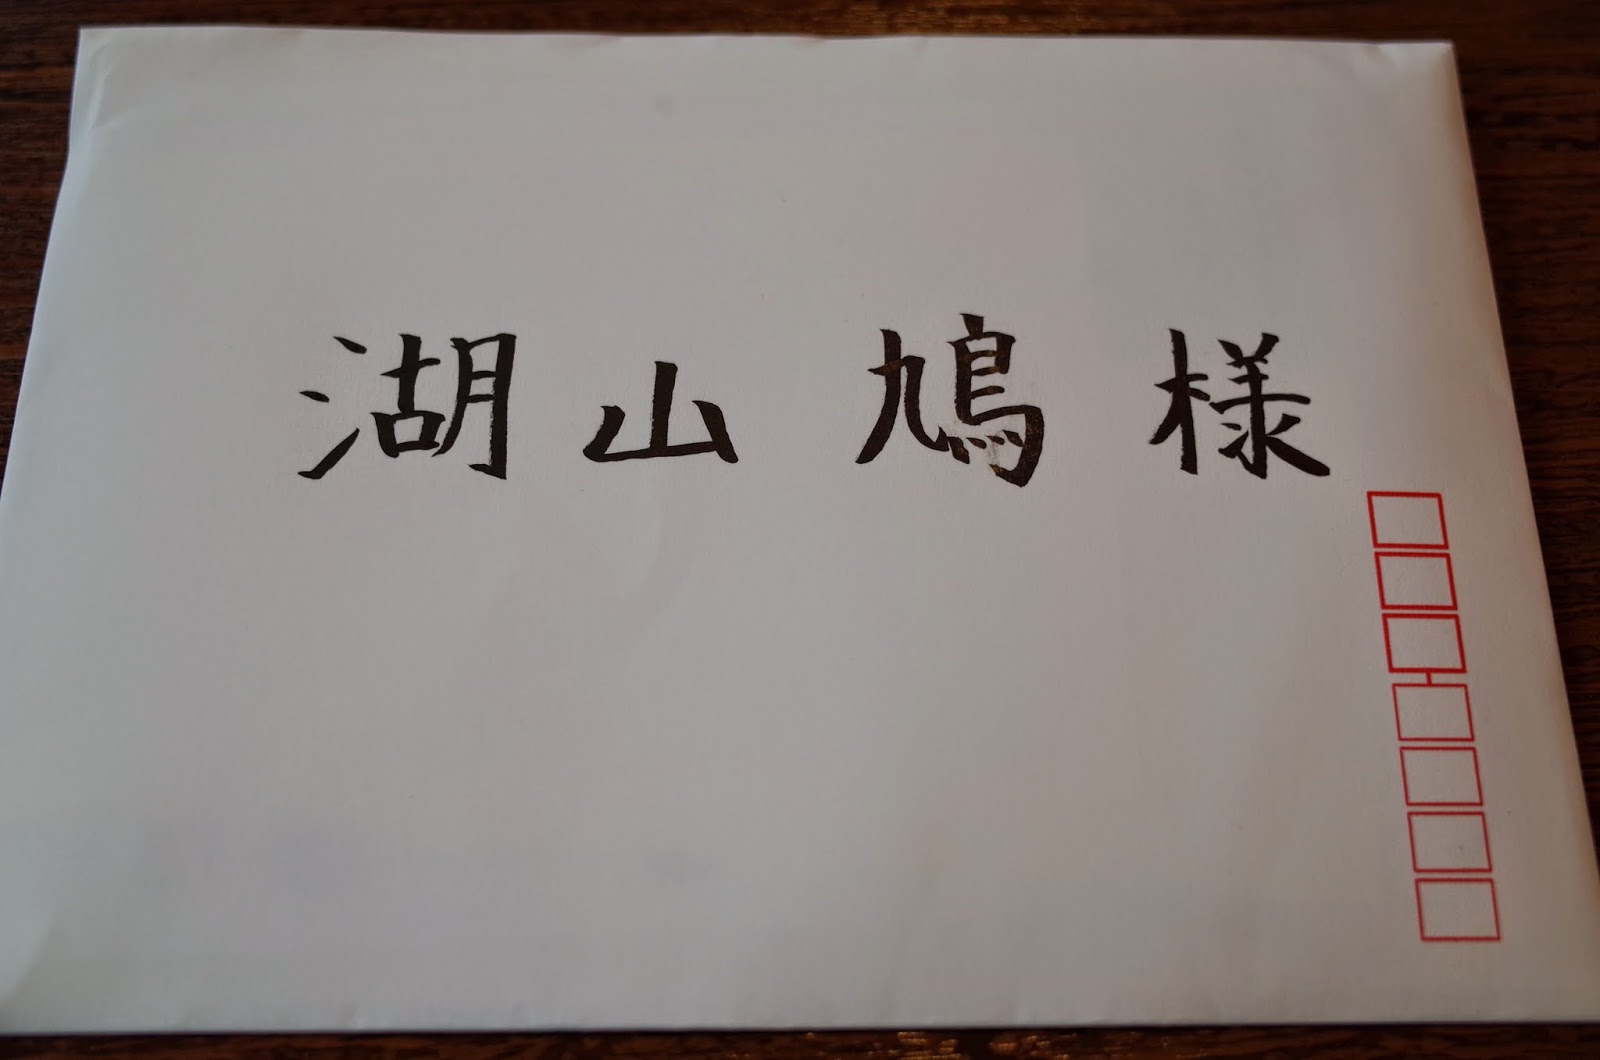 湖山 鳩 様